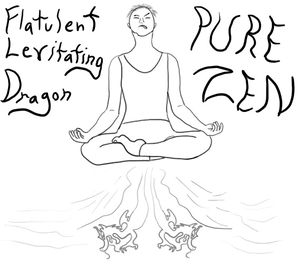 Flatulent
Levitating
Dragon
PURE
ZEN